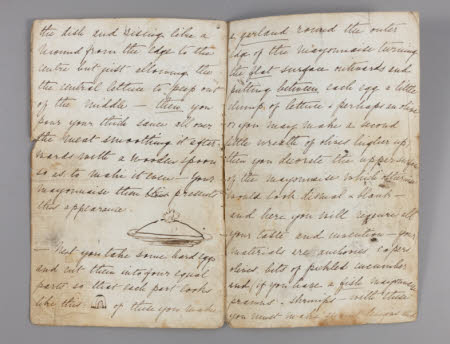 the dish and rising like a
mound from the edge to the
centre but just allowing the
the central lettuce to peep out
of the middle — then you
pour your thick sauce all over
the meat smoothing it after-
wards with a wooden spoon
so as to make it even — your
mayonnaise then presents
this appearance
— Next you take some hard eggs
and cut them into four equal
parts so that each part looks
like this of these you make
a garland round the outer
edge of the mayonnaise turning
the flat surface outwards and
putting between each egg a little
clump of lettuce & perhaps an olive
or you may make a second
little wreath of olives higher up
then you decorate the upper
of the mayonnaise which otherwise
would look dismal & blank —
and here you will require all
your taste and invention — your
materials are anchovies capers
olives, bits of pickled cucumber
and, if you have a fish mayonnaise
prawns & shrimps — with these
you must make